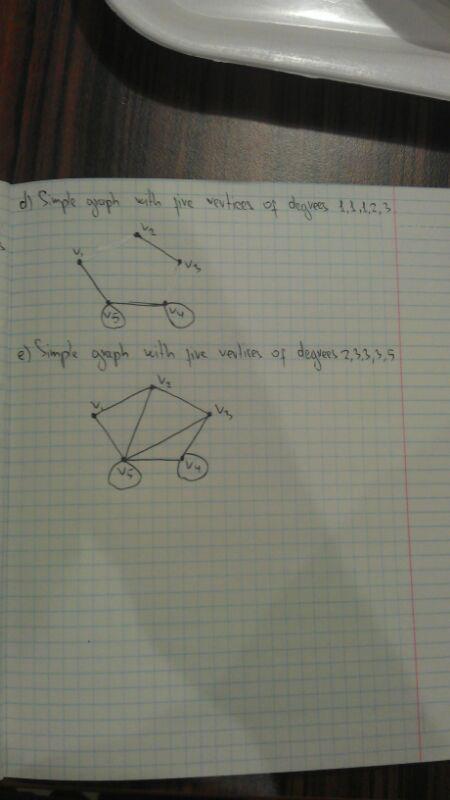 d) Simple graph with five vertices of degrees 1,1,1,2,3
V2
V1
V3
V5 V4
e) Simple graph with five vertices of degrees 2,3,3,3,5
V2
V1
V3
V5 V4